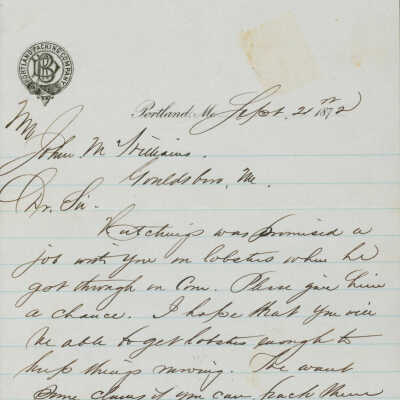 PORTLAND PACKING COMPANY
Portland, Me. Sept. 21st 1872
Mr
John McWilliams.
Gouldsboro, Me.
Dr. Sir.
Hutchings was promised a
job with you on lobsters when he
got through on Corn. Please give him
a chance. I hope that you will
be able to get lobsters enough to
keep things moving. We want
some clams if you can pack them